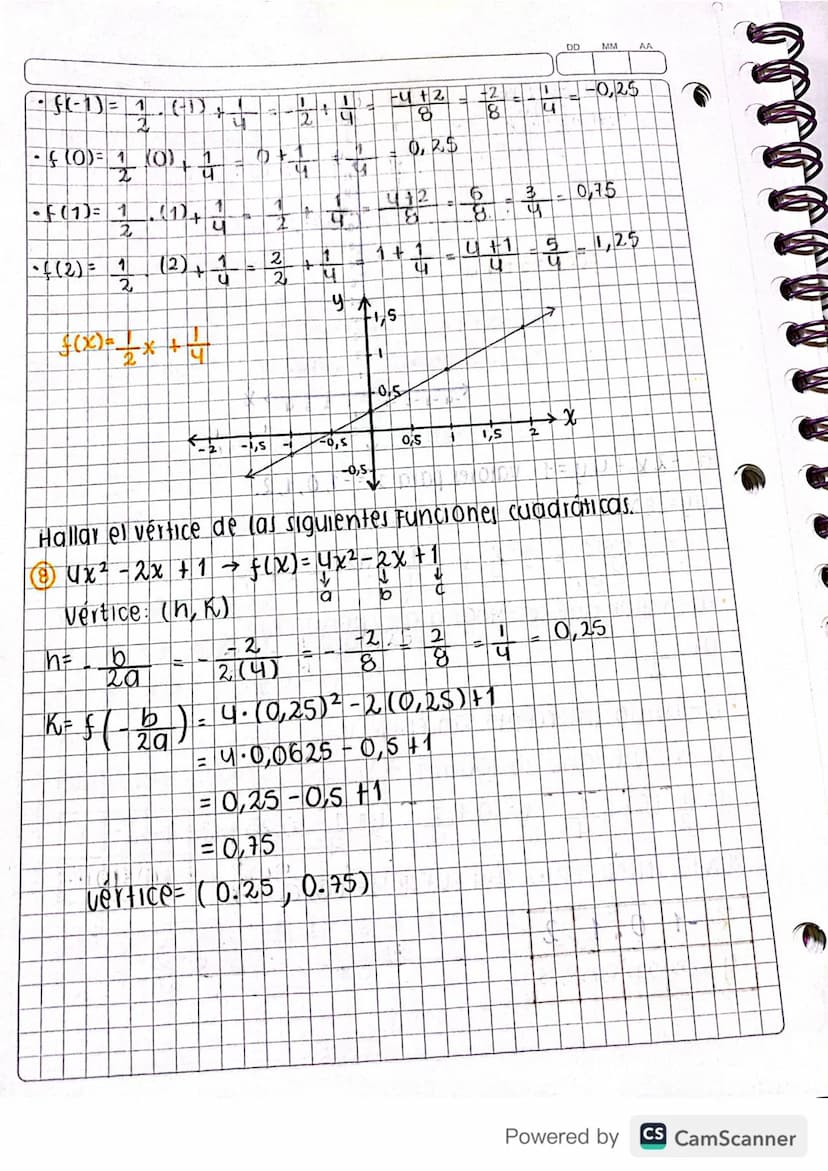 DD MM AA
• f(-1) = 1/2 . (-1) + 1/4 = -1/2 + 1/4 = -4+2/8 = -2/8 = -1/4 = -0,25
• f(0) = 1/2 (0) + 1/4 = 0 + 1/4 = 1/4 = 0,25
• f(1) = 1/2 . (1) + 1/4 = 1/2 + 1/4 = 4+2/8 = 6/8 = 3/4 = 0,75
• f(2) = 1/2 . (2) + 1/4 = 2/2 + 1/4 = 1 + 1/4 = 4+1/4 = 5/4 = 1,25
f(x) = 1/2 x + 1/4
y
1,5
1
0,5
-2 -1,5 -1 -0,5 0,5 1 1,5 2 X
-0,5
Hallar el vértice de las siguientes Funciones cuadráticas.
8 4x² - 2x + 1 → f(x) = 4x² - 2x + 1
a b c
Vértice: (h, K)
h = - b/2a = - -2/2(4) = - -2/8 = 2/8 = 1/4 = 0,25
K = f(- b/2a) = 4 · (0,25)² - 2(0,25) + 1
= 4 · 0,0625 - 0,5 + 1
= 0,25 - 0,5 + 1
= 0,75
Vértice = (0.25, 0.75)
Powered by CS CamScanner